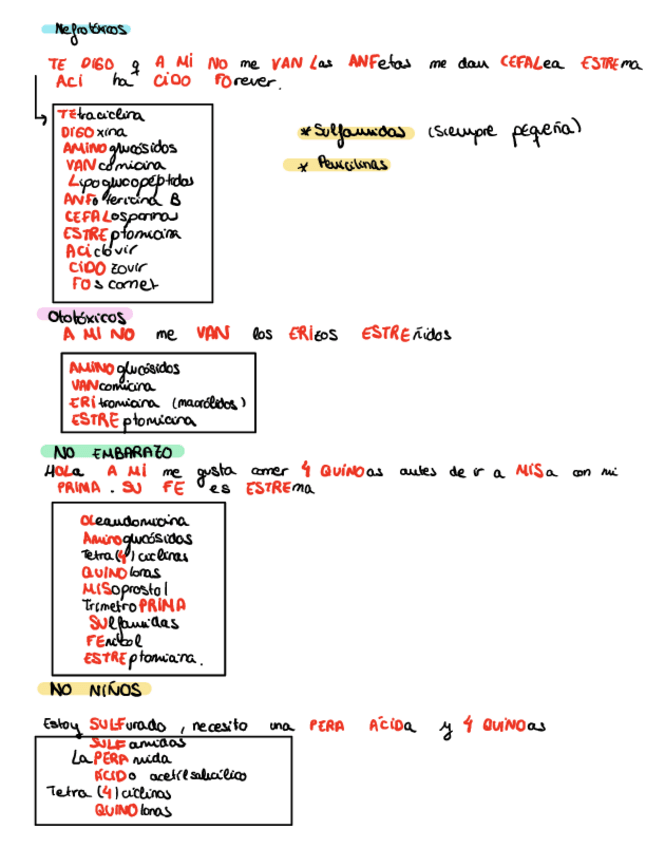 Nefrotóxicos
TE DIGO q A MI NO me VAN Las ANFetas me dan CEFALea ESTREma
ACI ha CIDO FOrever.
TEtraciclina
DIGOxina
AMINOglucósidos
VANcomicina
Lipoglucopéptidos
ANFotericina B
CEFALosporinas
ESTREptomicina
ACiclovir
CIDOfovir
FOscarnet
* Sulfamidas (siempre pequeña)
* Penicilinas
Ototóxicos
A MI NO me VAN los ERIzos ESTREñidos
AMINOglucósidos
VANcomicina
ERItromicina (macrólidos)
ESTREptomicina
NO EMBARAZO
HOLa A MI me gusta comer 4 QUINOas antes de ir a MISa con mi
PRIMA. SU FE es ESTREma
OLeandomicina
Aminoglucósidos
Tetra(4)ciclinas
QUINOlonas
MISoprostol
TrimetroPRIMA
SUlfamidas
FEnicol
ESTREptomicina.
NO NIÑOS
Estoy SULFurado, necesito una PERA ÁCIDa y 4 QUINOas
SULFamidas
LoPERAmida
ÁCIDo acetilsalicílico
Tetra(4)ciclinas
QUINOlonas